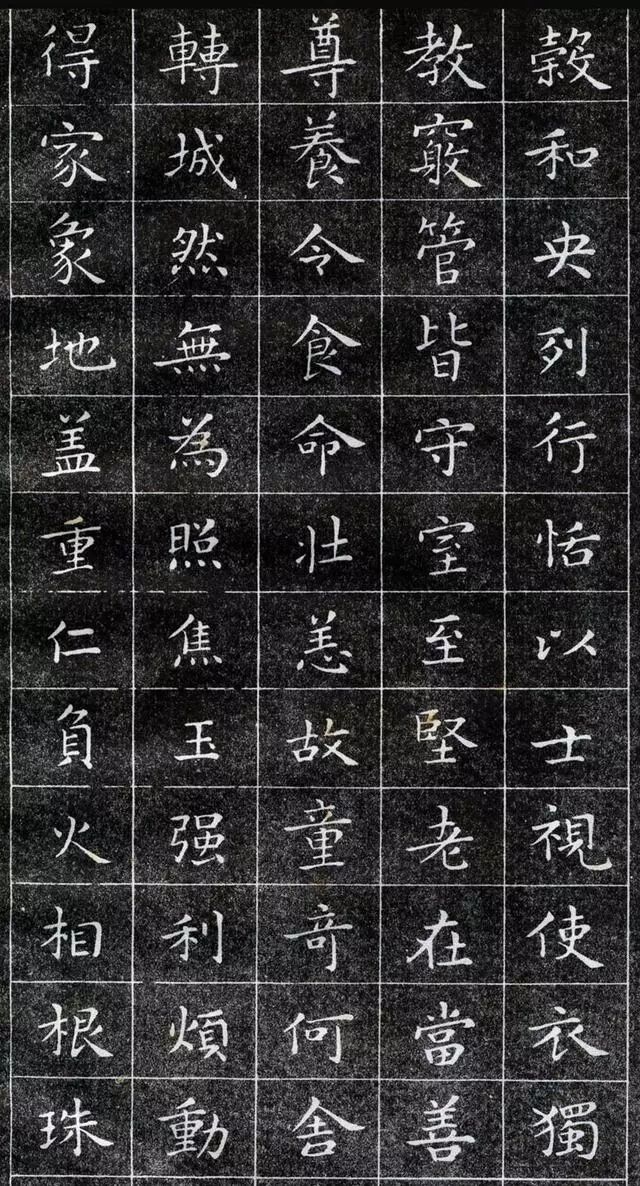 穀和央列行恬以士視使衣獨
教窮管皆守室至堅老在當善
尊養令食命壮恙故童奇何舍
轉城然無為照焦玉强利煩動
得家象地盖重仁負火相根珠